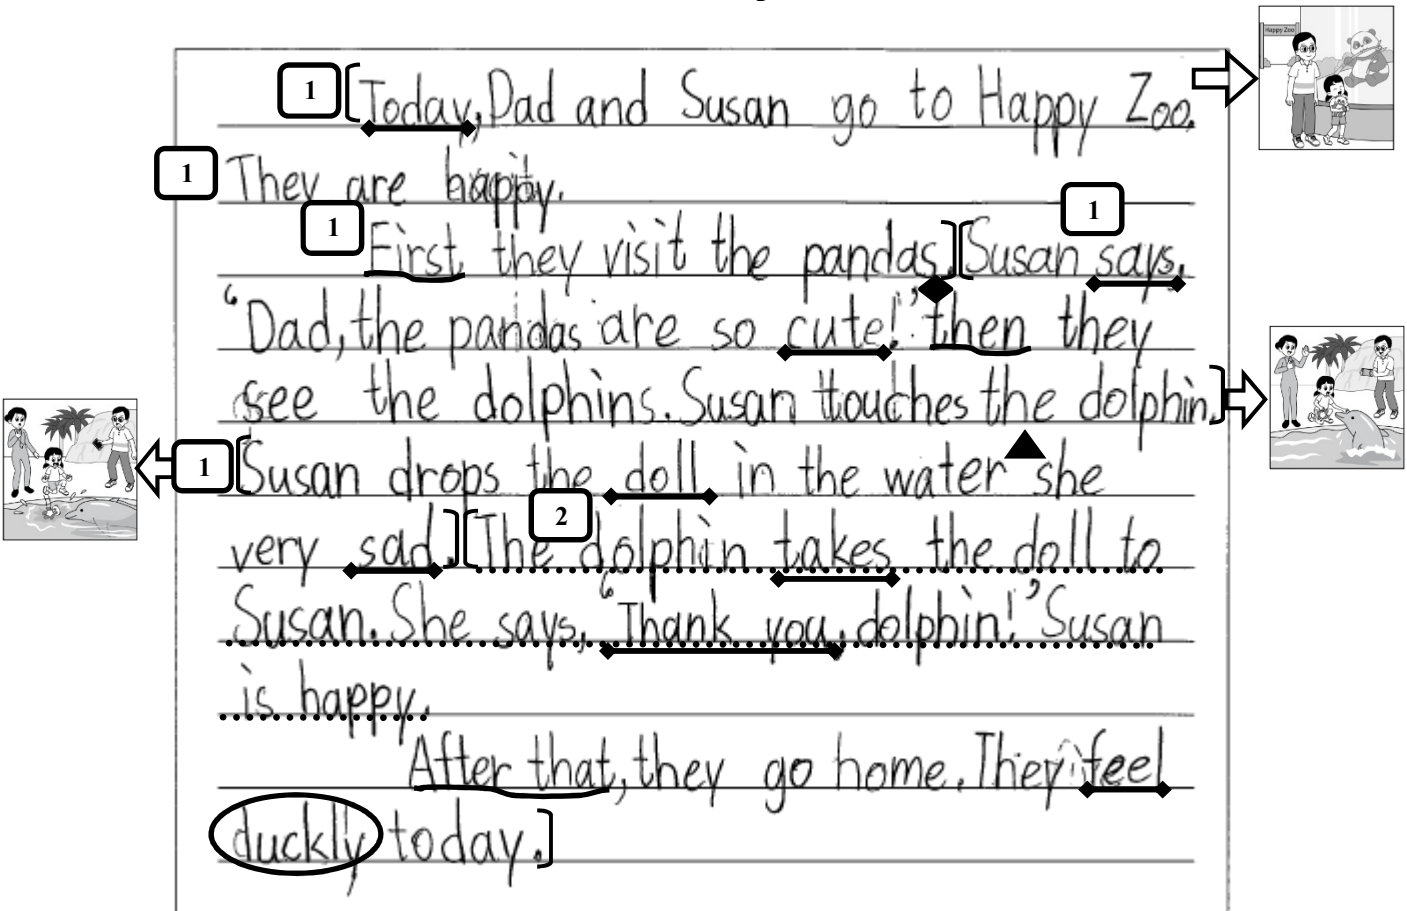 Happy Zoo
1 Today, Dad and Susan go to Happy Zoo.
1 They are happy.
1 1
First they visit the pandas. Susan says,
‘Dad, the pandas are so cute!’ then they
see the dolphins. Susan touches the dolphin.
1 Susan drops the doll in the water she
2
very sad. The dolphin takes the doll to
Susan. She says, ‘Thank you, dolphin!’ Susan
is happy.
After that, they go home. They feel
duckly today.